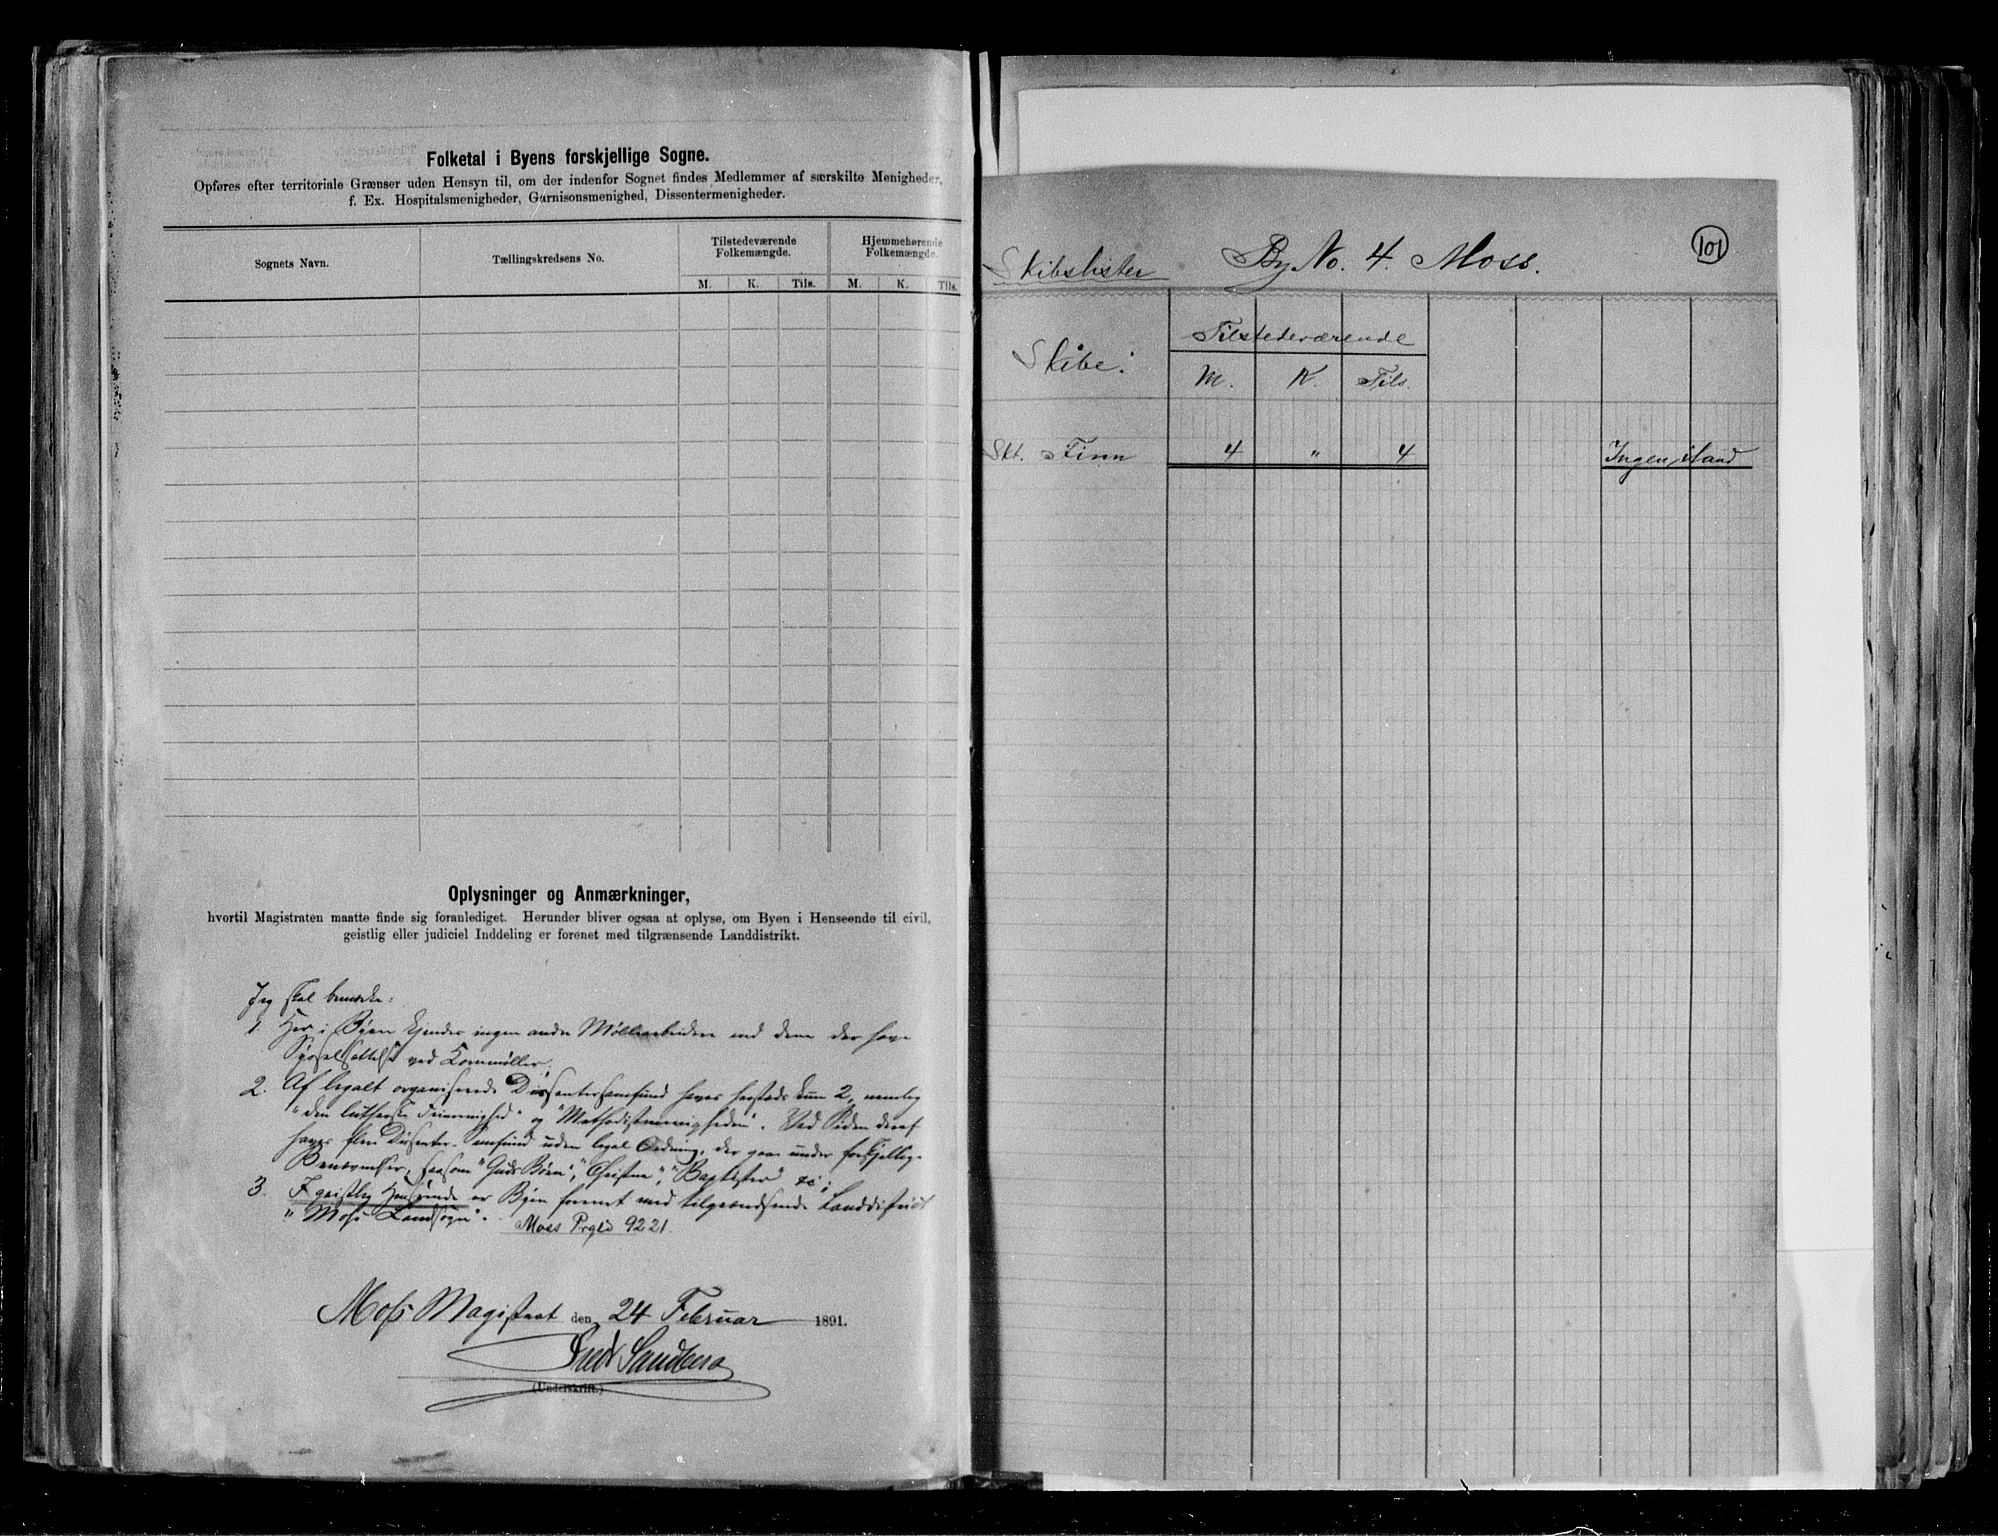 Folketal i Byens forskjellige Sogne.
Opføres efter territoriale Grænser uden Hensyn til, om der indenfor Sognet findes Medlemmer af særskilte Menigheder,
f. Ex. Hospitalsmenigheder, Garnisonsmenighed, Dissentermenigheder.
Sognets Navn.
Tællingskredsens No.
Tilstedeværende
Folkemængde.
Hjemmehørende
Folkemængde.
M. K. Tils. M. K. Tils.
Oplysninger og Anmærkninger,
hvortil Magistraten maatte finde sig foranlediget. Herunder bliver ogsaa at oplyse, om Byen i Henseende til civil,
geistlig eller judiciel Inddeling er forenet med tilgrænsende Landdistrikt.
Jeg skal bemærke:
1. Her i Byen kjendes ingen andre Møllearbeidere end dem der have
Sysselsættelse ved Kornmøller;
2. Af legalt organiserede Dissentersamfund haves hersteds kun 2, nemlig
"den lutherske Frimenighed" og "Methodistmenigheden". Ved Siden deraf
haves flere Dissenter-Samfund uden legal Ordning, der gaar under forskjellige
Benævnelser, saasom "Guds Børn", "Christne", "Baptister" &c;
3. I geistlig Henseende er Byen forenet med tilgrændsende Landdistrict
"Moss Landsogn".
Moss Prgld 9221.
Moss Magistrat den 24 Februar 1891.
Fredr Sandberg
(Underskrift.)
101
Skibslister By No. 4. Moss.
Skibe:
Tilstedeværende
M. K. Tils.
Skt. Finn 4 " 4 Ingen iland